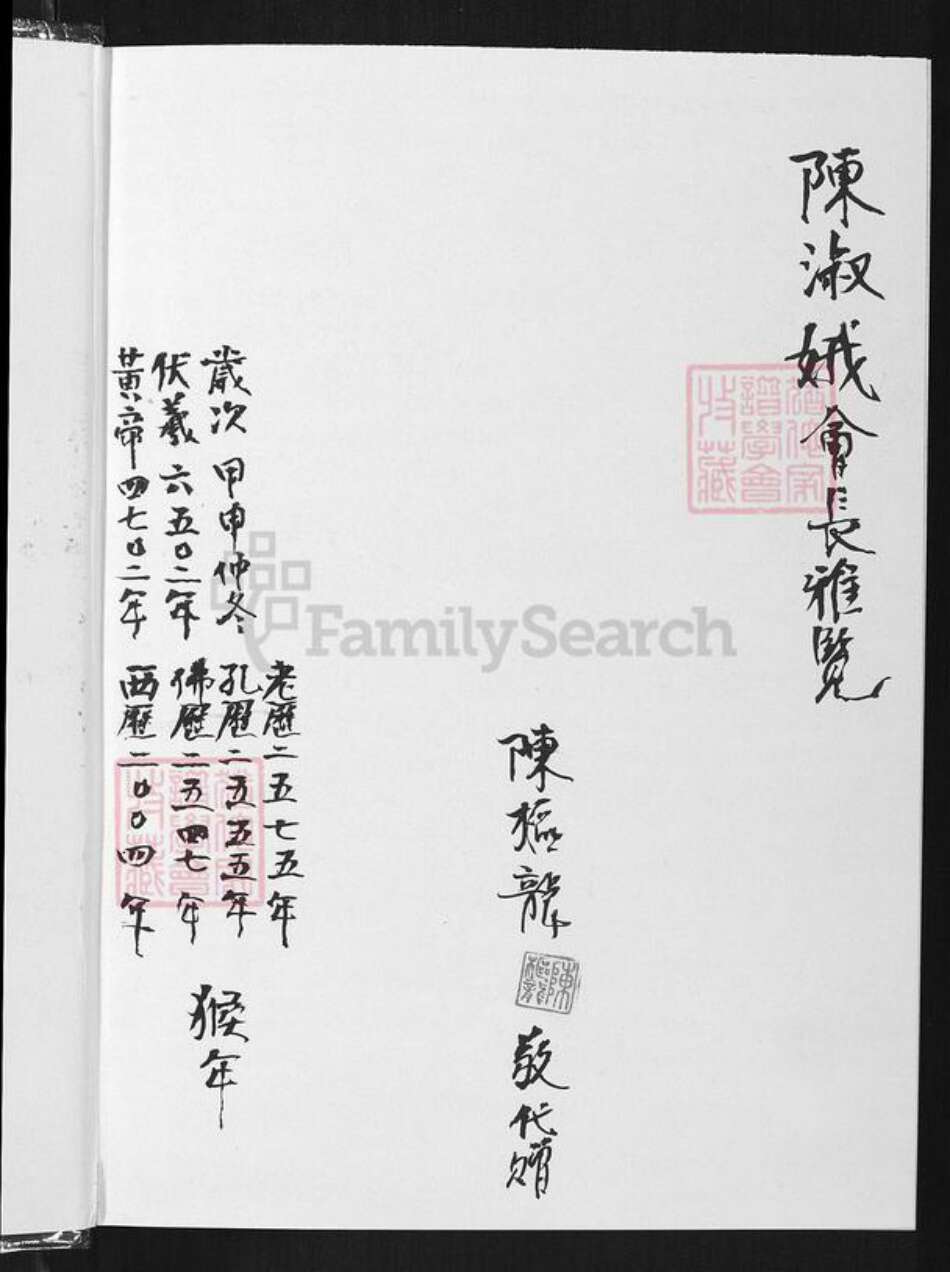 陳淑娥會長雅覽
譜學會
收藏
陳樞龍
敬代贈
老歷二五七五年
歲次甲申仲冬 孔歷二五五五年
伏羲六五〇二年 佛歷二五四七年
黃帝四七〇二年 西歷二〇〇四年
猴年
FamilySearch